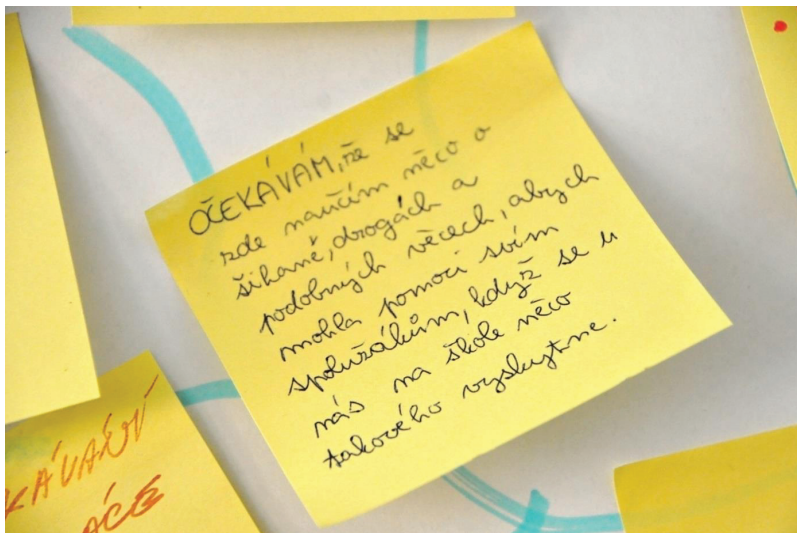 OČEKÁVÁM, že se
zde naučím něco o
šikaně, drogách a
podobných věcech, abych
mohla pomoci svým
spolužákům, když se u
nás na škole něco
takového vyskytne.